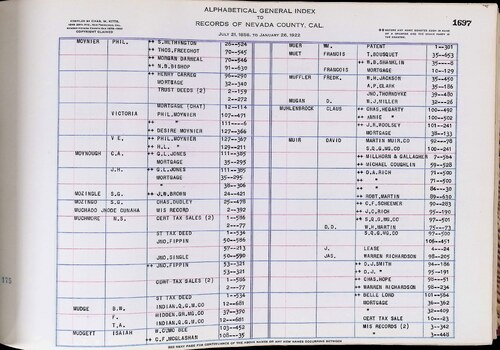 ALPHABETICAL GENERAL INDEX
TO
RECORDS OF NEVADA COUNTY, CAL.
JULY 31, 1856, TO JANUARY 28, 1923
1697
COPYRIGHT CLAIMED
MOYNIER PHIL, ++ S.HETHINGTON 26-524
++ THOS.FREECHOT 70-545
++ MORGAN BARNEAL 70-546
++ N.B.BISHOP 91-630
++ HENRY CARREG 96-290
MORTGAGE 32-340
TRUST DEEDS (2) 2-159
2-272
MORTGAGE (CHAT) 12-114
VICTORIA PHIL.MOYNIER 107-471
++ " 111----6
++ DESIRE MOYNIER 127-366
V E, ++ PHIL.MOYNIER 127-367
++ H.L. " 129-211
MOYNOUGH C.A. ++ G.L.JONES 111-385
MORTGAGE 35-295
J.H. ++ G.L.JONES 111-385
MORTGAGE 35-295
" 38-306
MOZINGLE S.G. ++ J.W.BROWN 24-421
MOZINGO S.G. CHAS.DUDLEY 25-478
MUCHADO JNODE CUNAHA MIS RECORD 2-392
MUCHMORE N.S. CERT TAX SALES (2) 1-586
2---77
ST TAX DEED 1-534
JNO.FIPPIN 50-586
57-213
JNO.SINGLE 50-590
++ JNO.FIPPIN 53-321
53-321
CERT-TAX SALES (2) 1-586
2---77
ST TAX DEED 1-534
MUDGE B.W. INDIAN.Q.G.M.CO 12-681
F. HIDDEN.GR.MG.CO 37-390
T.A. INDIAN.Q.G.M.CO 12-681
MUDGETT ISAIAH W.COMO BEE 103-452
++ C.F.MCGLASHAN 108--35
MUER WM. PATENT 1-301
MUET FRANCIS T.BOUSQUET 35-653
++ M.B.SHANKLIN 35----8
FRANCOIS MORTGAGE 10-129
MUFFLER FREDK. W.H.JACKSON 35-450
A.P.CLARK 35-186
JNO.THORNDYKE 39-480
MUGAN D. N.J.MILLER 32--26
MUHLENBROCK CLAUS ++ CHAS.HEGARTY 100-492
++ ANNIE " 100-502
++ J.R.WOOLSEY 101-241
MORTGAGE 38-133
MUIR DAVID MARTIN MUIR,CO 92--78
S.Q.G.MG.CO 100-241
++ MILLHORN & GALLAGHER 7-584
++ MICHAEL COUGHLIN 59-528
++ D.A.RICH 71-500
++ " 71-500
++ " 84--30
++ ROBT.MARTIN 89-630
++ C.F.SCHEEMER 90-283
++ J.C.RICH 95-190
++ S.Q.G.MG.CO 97-501
D.D. W.H.MARTIN 75--73
S.Q.G.MG.CO 97-500
106-451
J. LEASE 4--24
JAS. WARREN RICHARDSON 98-205
++ D.J.SMITH 94-186
++ D.J. " 95-191
++ CHAS.HOPE 90--51
++ WARREN RICHARDSON 98-234
++ BELLE LORD 101-564
MORTGAGE 36-362
" 32-409
CERT TAX SALE 10-623
MIS RECORDS (2) 3-342
" 3-448